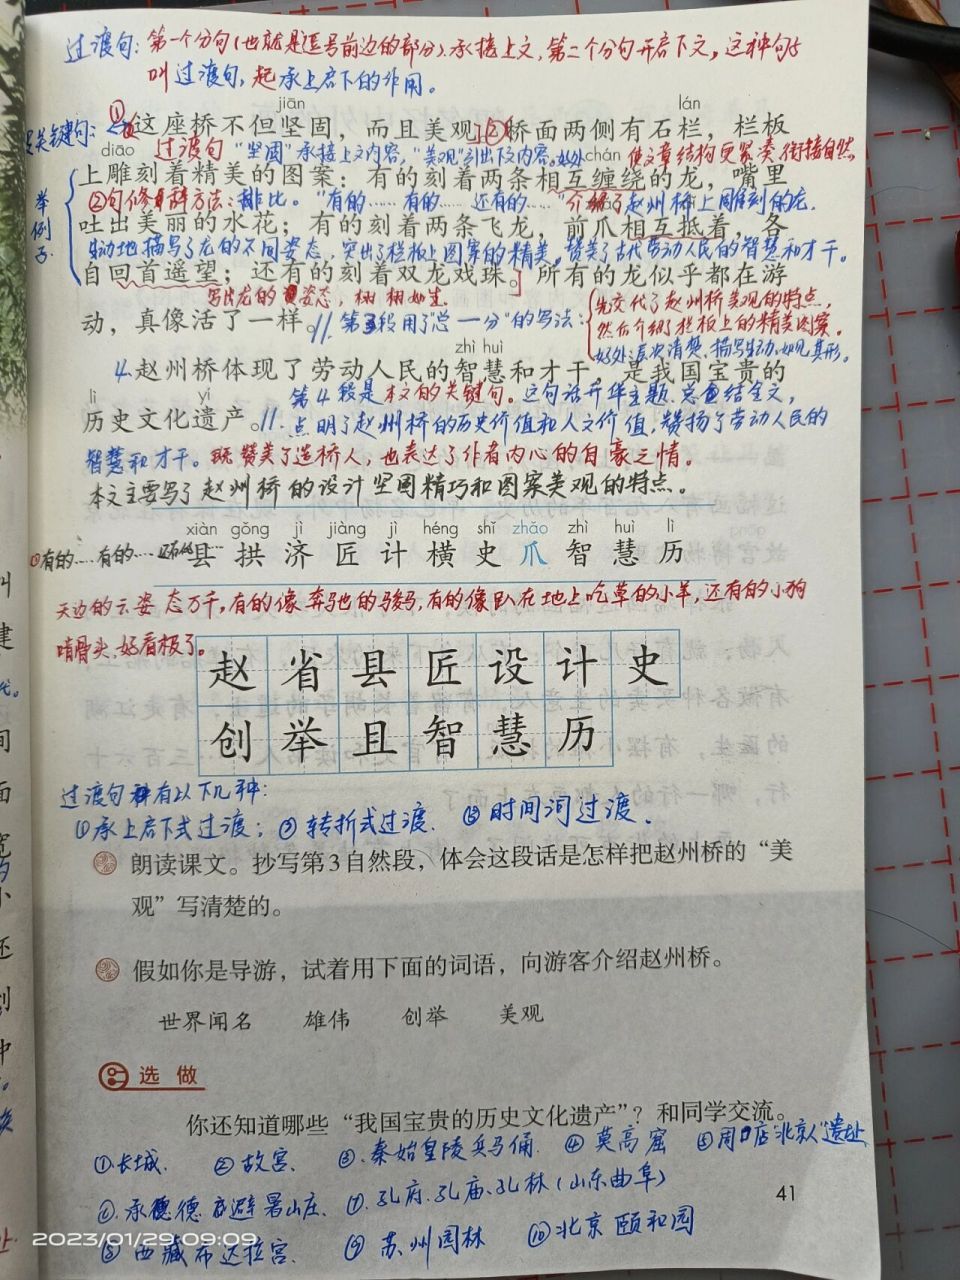 过渡句：第一个分句（也就是逗号前边的部分）、承接上文，第二个分句开启下文，这种句子
叫过渡句，起承上启下的作用。
jiān lán
关键句：①这座桥不但坚固，而且美观。②桥面两侧有石栏，栏板
diāo 过渡句 "坚固"承接上文内容，"美观"引出下文内容。好处 chán 使文章结构更紧凑，衔接自然
上雕刻着精美的图案：有的刻着两条相互缠绕的龙，嘴里
②句修辞方法：排比。"有的……有的……还有的……"介绍了赵州桥上雕刻的龙.
举例子
吐出美丽的水花；有的刻着两条飞龙，前爪相互抵着，各
生动地描写了龙的不同姿态，突出了栏板上图案的精美。赞美了古代劳动人民的智慧和才干。
自回首遥望；还有的刻着双龙戏珠。所有的龙似乎都在游
写出龙的姿态，栩栩如生 先交代了赵州桥美观的特点，
动，真像活了一样。第3段用了"总—分"的写法： 然后介绍了栏板上的精美图案。
好处：层次清楚、描写生动、如见其形。
zhì huì
4.赵州桥体现了劳动人民的智慧和才干 是我国宝贵的
lì yí 第4段是本文的关键句。这句话升华主题、总结全文，
历史文化遗产。点明了赵州桥的历史价值和人文价值，赞扬了劳动人民的
智慧和才干。既赞美了造桥人，也表达了作者内心的自豪之情。
本文主要写了赵州桥的设计坚固精巧和图案美观的特点。
xiàn gǒng jì jiàng jì héng shǐ zhǎo zhì huì lì
①有的……有的……还有的…… 县 拱 济 匠 计 横 史 爪 智 慧 历
天边的云姿态万千，有的像奔驰的骏马，有的像趴在地上吃草的小羊，还有的小狗
啃骨头，好看极了。
赵 省 县 匠 设 计 史
创 举 且 智 慧 历
过渡句有以下几种：
①承上启下式过渡；②转折式过渡. ③时间词过渡.
朗读课文。抄写第3自然段，体会这段话是怎样把赵州桥的“美
观”写清楚的。
假如你是导游，试着用下面的词语，向游客介绍赵州桥。
世界闻名 雄伟 创举 美观
选做
你还知道哪些“我国宝贵的历史文化遗产”？和同学交流。
①长城. ②故宫. ③.秦始皇陵兵马俑. ④莫高窟 ⑤周口店"北京人"遗址
⑥.承德避暑山庄. ⑦.孔府.孔庙.孔林（山东曲阜）
41
⑧西藏布达拉宫. ⑨苏州园林 ⑩北京颐和园
2023/01/29 09:09